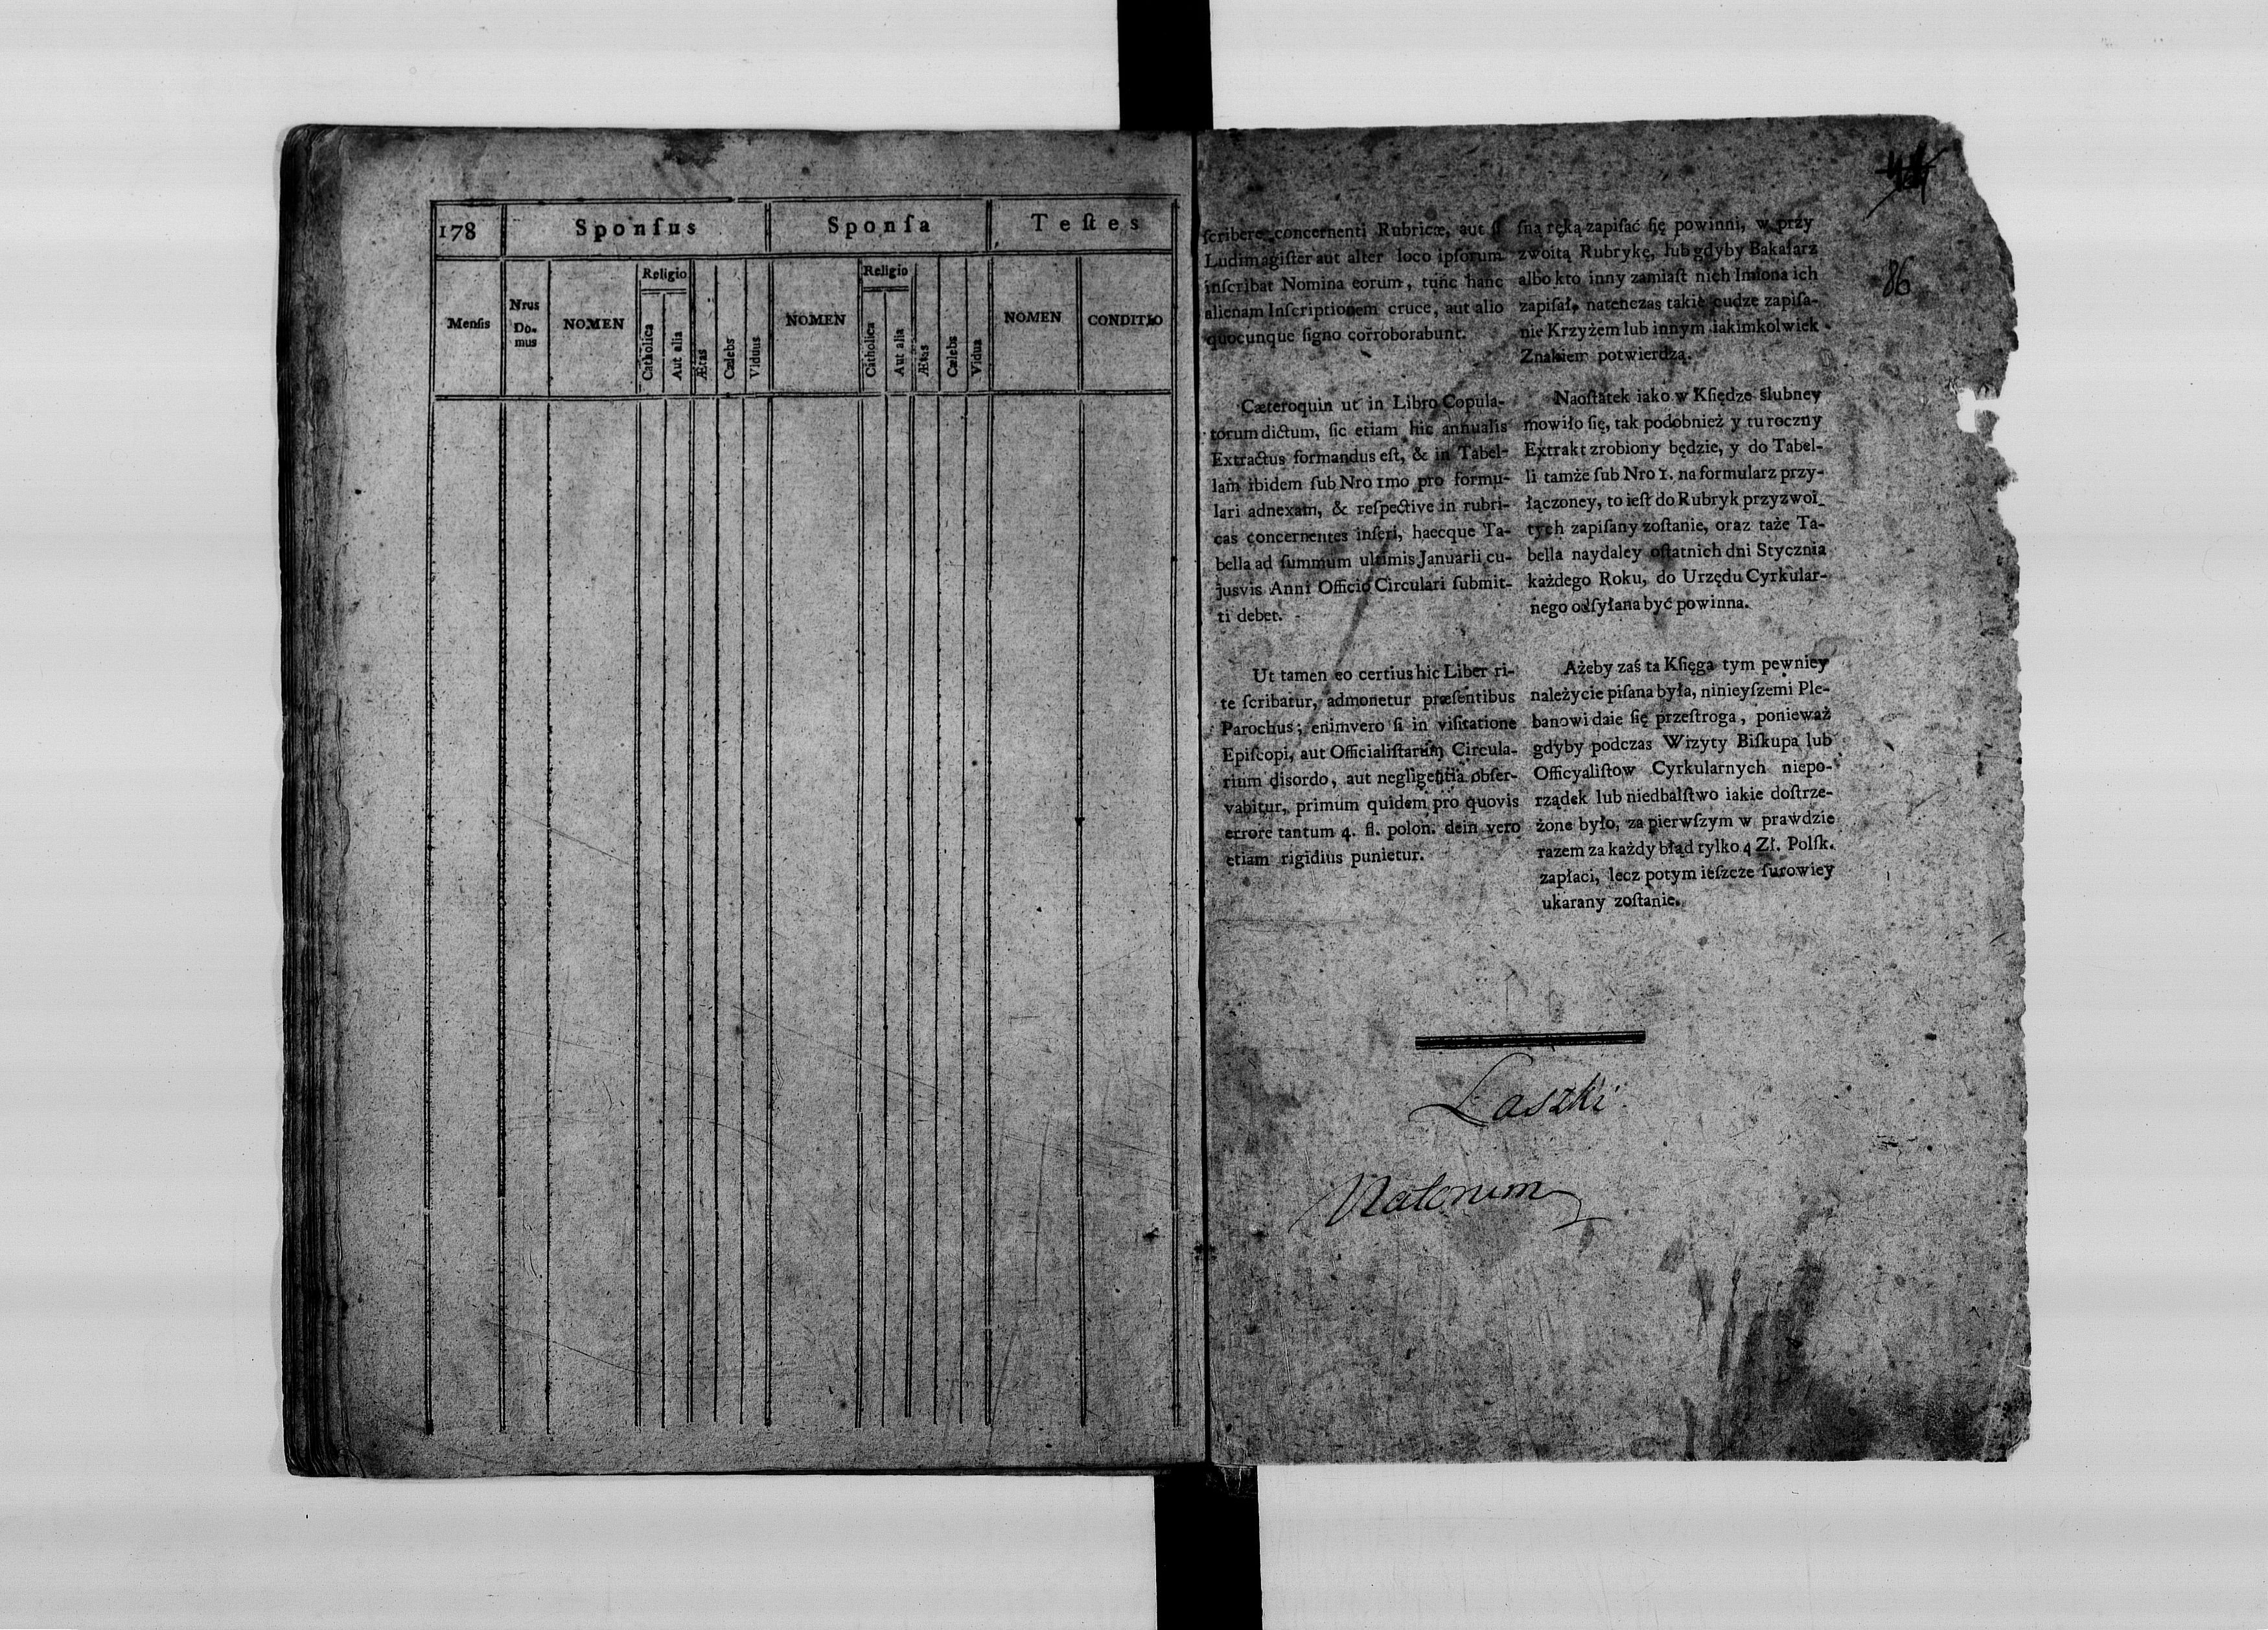 178 Sponſus Sponſa Teſtes
Menſis Nrus Domus NOMEN Religio Catholica Aut alia Ætas Cælebs Viduus NOMEN Religio Catholica Aut alia Ætas Cælebs Vidua NOMEN CONDITIO
86
ſcribere concernenti Rubricæ, aut ſi
Ludimagiſter aut alter loco ipſorum
inſcribat Nomina eorum, tunc hanc
alienam Inſcriptionem cruce, aut alio
quocunque ſigno corroborabunt.
Cæteroquin ut in Libro Copula-
torum dictum, ſic etiam hic annualis
Extractus formandus eſt, & in Tabel-
lam ibidem ſub Nro 1mo pro formu-
lari adnexam, & reſpective in rubri-
cas concernentes inſeri, haecque Ta-
bella ad ſummum ultimis Januarii cu-
jusvis Anni Officio Circulari ſubmit-
ti debet.
Ut tamen eo certius hic Liber ri-
te ſcribatur, admonetur præſentibus
Parochus; enimvero ſi in viſitatione
Epiſcopi, aut Officialiſtarum Circula-
rium diſordo, aut negligentia obſer-
vabitur, primum quidem pro quovis
errore tantum 4. fl. polon. dein vero
etiam rigidius punietur.
ſną ręką zapiſać ſię powinni, w przy
zwoitą Rubrykę, lub gdyby Bakałarz
albo kto inny zamiaſt nich Imiona ich
zapiſał, natenczas takie cudze zapiſa-
nie Krzyżem lub innym iakimkolwiek
Znakiem potwierdzą.
Naoſtatek iako w Kſiędze ślubney
mowiło ſię, tak podobnież y tu roczny
Extrakt zrobiony będzie, y do Tabel-
li tamże ſub Nro 1. na formularz przy-
łączoney, to ieſt do Rubryk przyzwoi-
tych zapiſany zoſtanie, oraz taże Ta-
bella naydaley oſtatnich dni Stycznia
każdego Roku, do Urzędu Cyrkular-
nego odſyłana być powinna.
Ażeby zaś ta Kſięga tym pewniey
należycie piſana była, ninieyſzemi Ple-
banowi daie ſię przeſtroga, ponieważ
gdyby podczas Wizyty Biſkupa lub
Officyaliſtow Cyrkularnych niepo-
rządek lub niedbalſtwo iakie doſtrze-
żone było, za pierwſzym w prawdzie
razem za każdy błąd tylko 4 Zł. Polſk.
zapłaci, lecz potym ieſzcze ſurowiey
ukarany zoſtanie.
Laszki
Natorum